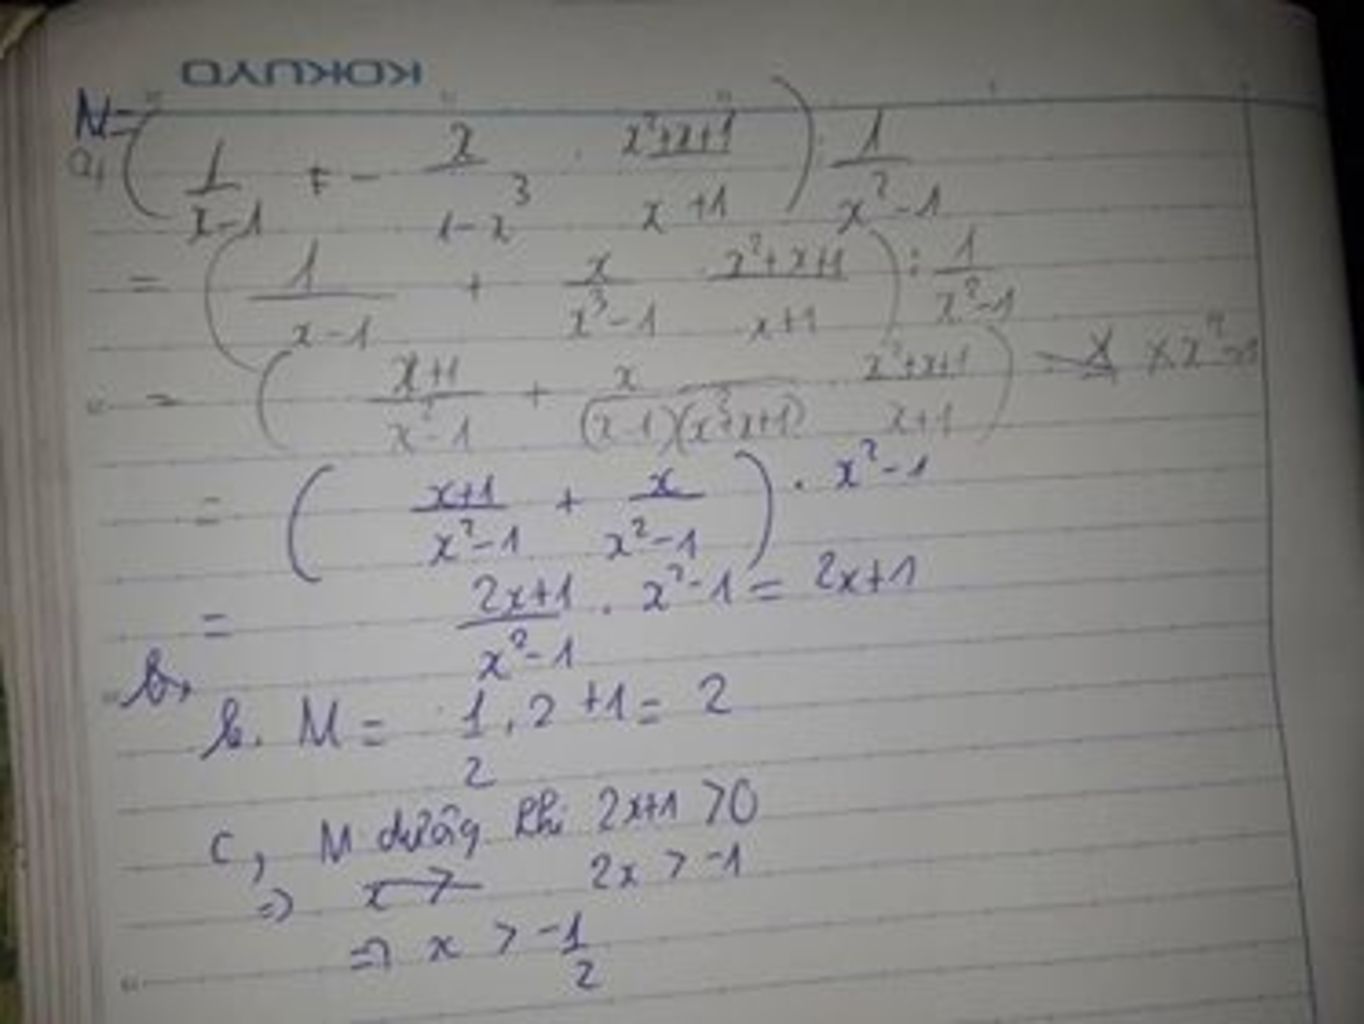 KOKUYO
M = ( 1/(x-1) - x/(1-x³) . (x²+x+1)/(x+1) ) : 1/(x²-1)
a,
= ( 1/(x-1) + x/(x³-1) . (x²+x+1)/(x+1) ) : 1/(x²-1)
= ( (x+1)/(x²-1) + x/((x-1)(x²+x+1)) . (x²+x+1)/(x+1) )
= ( (x+1)/(x²-1) + x/(x²-1) ) . x²-1
= (2x+1)/(x²-1) . x²-1 = 2x+1
b,
b. M = 1/2 . 2 +1 = 2
c, M dương khi 2x+1 >0
=> x > 2x > -1
=> x > -1/2